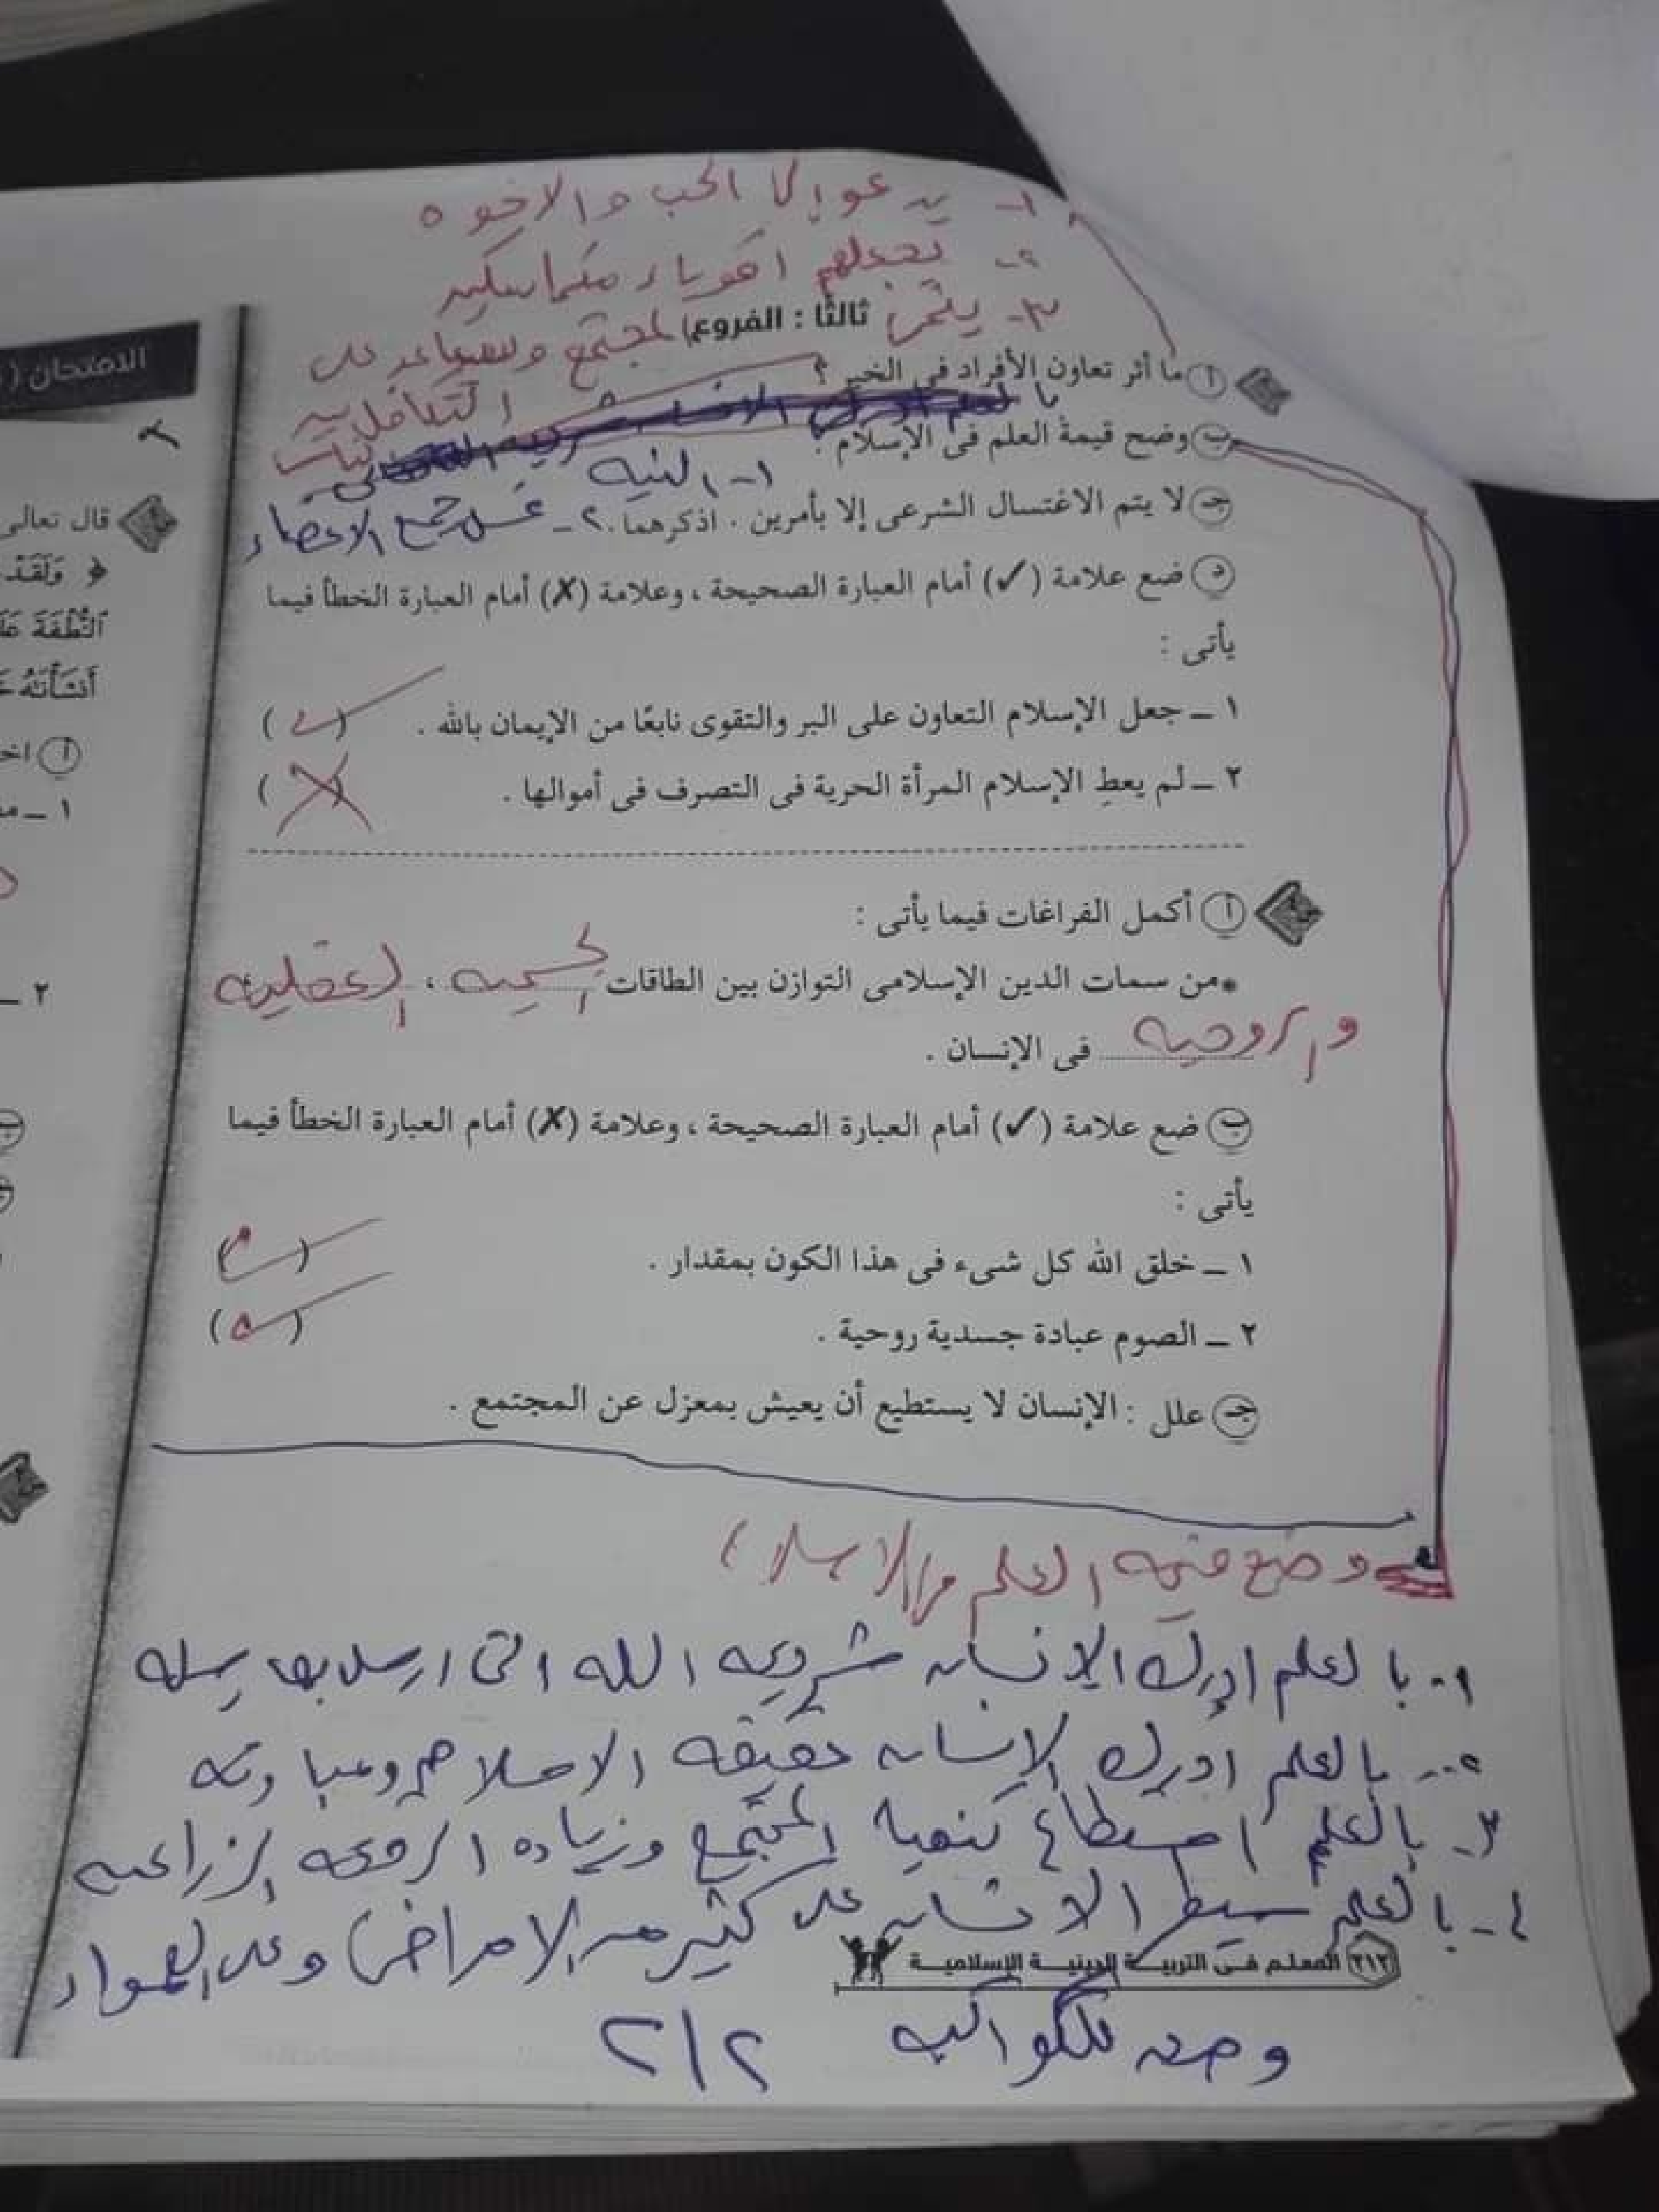 ١- يدعو إلى الحب والاخوه
٢- تجعلهم اقوياء متماسكين
٣- يثمر المجتمع ويساعد على
التكافل بين
الناس
ثالثًا : الفروع
أ ما أثر تعاون الأفراد فى الخير ؟
ب وضح قيمة العلم فى الإسلام .
١- النيه
جـ لا يتم الاغتسال الشرعى إلا بأمرين . اذكرهما. ٢- غسل جميع الاعضاء
د ضع علامة (✓) أمام العبارة الصحيحة ، وعلامة (✗) أمام العبارة الخطأ فيما
يأتى :
١ ــ جعل الإسلام التعاون على البر والتقوى نابعًا من الإيمان بالله . (✓)
٢ ــ لم يعطِ الإسلام المرأة الحرية فى التصرف فى أموالها . (✗)
أ أكمل الفراغات فيما يأتى :
*من سمات الدين الإسلامى التوازن بين الطاقات الجسميه ، العقليه
و الروحيه فى الإنسان .
ب ضع علامة (✓) أمام العبارة الصحيحة ، وعلامة (✗) أمام العبارة الخطأ فيما
يأتى :
١ ــ خلق الله كل شىء فى هذا الكون بمقدار . (✓)
٢ ــ الصوم عبادة جسدية روحية . (✓)
جـ علل : الإنسان لا يستطيع أن يعيش بمعزل عن المجتمع .
وضح قيمه العلم فى الاسلام
١- بالعلم ادرك الانسان شريعه الله التى ارسل بها رسله
٢- بالعلم ادرك الإنسان حقيقه الاسلام وعبادته
٣- بالعلم استطاع تنميه المجتمع وزياده الرقعه الزراعيه
٤- بالعلم سيطر الانسان على كثير من الامراض وغزا الفضاء
وصعد للكواكب ٢/٢
٢١٢ المعلم فى التربيـة الدينيـة الإسلاميـة
الامتحان (
قال تعالى
﴿ وَلَقَدْ
النُّطْفَةَ
أَنشَأْنَاهُ
أ
١ ــ
٢ ــ